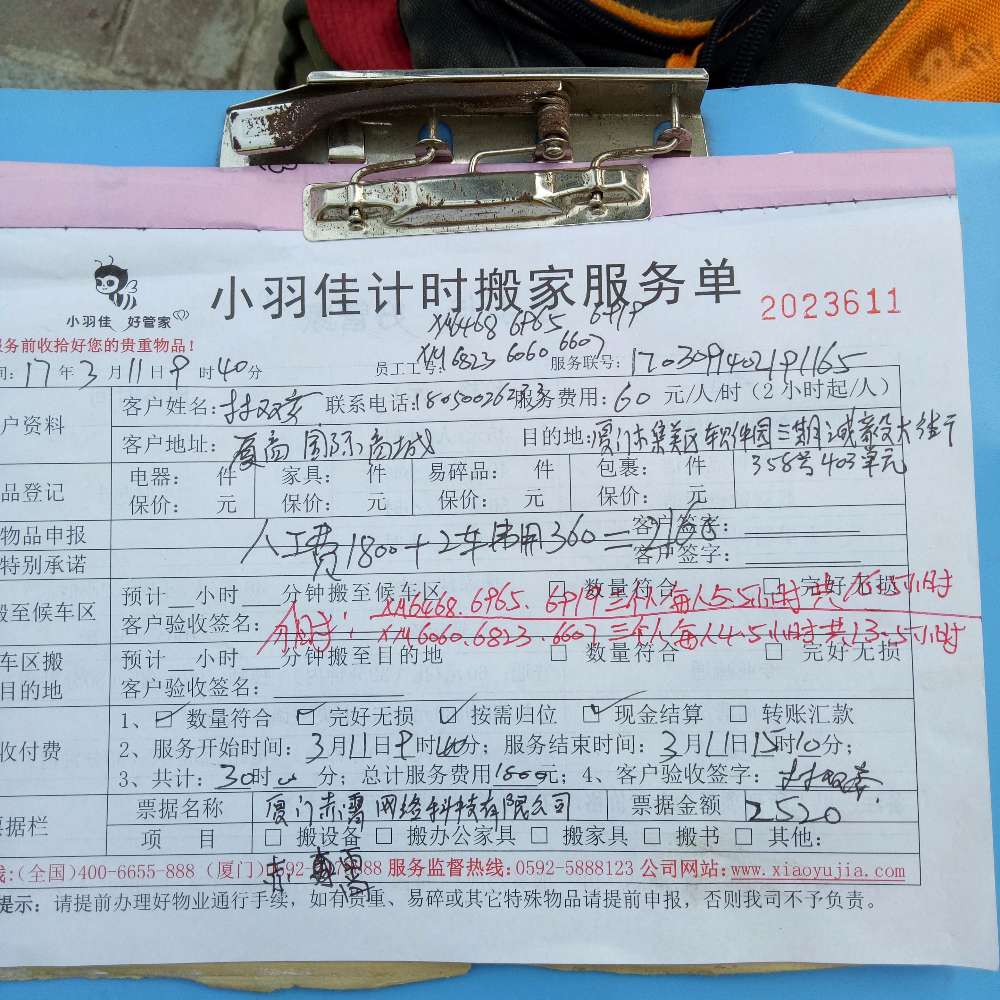 小羽佳计时搬家服务单
2023611
小羽佳 好管家
务前收拾好您的贵重物品！
XM6468 6965 6919
XM6823 6060 6607
间: 17年3月11日9时40分 员工工号: 服务联号: 170309402191165
户资料 客户姓名: 联系电话:18050026233 服务费用: 60 元/人/时（2小时起/人）
客户地址: 厦商国际商城 目的地: 厦门市集美区软件园三期诚毅大街
358号403单元
品登记 电器: 件 家具: 件 易碎品: 件 包裹: 件
保价: 元 保价: 元 保价: 元 保价: 元
物品申报 客户签字:
特别承诺 客户签字:
人工费1800+2车费用360=2160
搬至候车区 预计__小时___分钟搬至候车区 □ 数量符合 □ 完好无损
客户验收签名:
XM6468.6965.6919三个人每人5.5小时共16.5小时
分时: XM6060.6823.6607三个人每人4.5小时共13.5小时
车区搬 预计__小时___分钟搬至目的地 □ 数量符合 □ 完好无损
目的地 客户验收签名:
收付费 1、☑ 数量符合 ☑ 完好无损 ☑ 按需归位 ☑ 现金结算 □ 转账汇款
2、服务开始时间: 3月11日9时40分; 服务结束时间: 3月11日15时10分;
3、共计: 30时 分; 总计服务费用1800元; 4、客户验收签字:
票据栏 票据名称 厦门赤需网络科技有限公司 票据金额 2520
项 目 □ 搬设备 □ 搬办公家具 □ 搬家具 □ 搬书 □ 其他:
线:(全国)400-6655-888 (厦门) 服务监督热线: 0592-5888123 公司网站: www.xiaoyujia.com
提示: 请提前办理好物业通行手续, 如有贵重、易碎或其它特殊物品请提前申报, 否则我司不予负责。